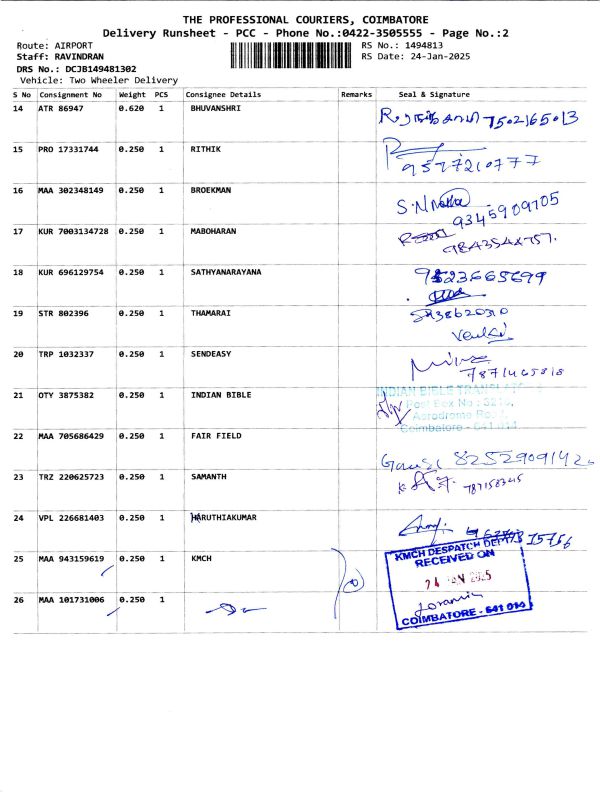 THE PROFESSIONAL COURIERS, COIMBATORE
Delivery Runsheet - PCC - Phone No.:0422-3505555 - Page No.:2
Route: AIRPORT RS No.: 1494813
Staff: RAVINDRAN RS Date: 24-Jan-2025
DRS No.: DCJB149481302
Vehicle: Two Wheeler Delivery
S No Consignment No Weight PCS Consignee Details Remarks Seal & Signature
14 ATR 86947 0.620 1 BHUVANSHRI 7502165013
15 PRO 17331744 0.250 1 RITHIK 9577210777
16 MAA 302348149 0.250 1 BROEKMAN S.N 9345909705
17 KUR 7003134728 0.250 1 MABOHARAN
18 KUR 696129754 0.250 1 SATHYANARAYANA
19 STR 802396 0.250 1 THAMARAI
20 TRP 1032337 0.250 1 SENDEASY 7871465818
21 OTY 3875382 0.250 1 INDIAN BIBLE INDIAN BIBLE
Post Box No :
Aerodrome
Coimbatore - 641 014
22 MAA 705686429 0.250 1 FAIR FIELD 82529091420
23 TRZ 220625723 0.250 1 SAMANTH 787158345
24 VPL 226681403 0.250 1 HARUTHIAKUMAR
25 MAA 943159619 0.250 1 KMCH KMCH DESPATCH
RECEIVED ON
24 JAN 2025
26 MAA 101731006 0.250 1
COIMBATORE - 641 014